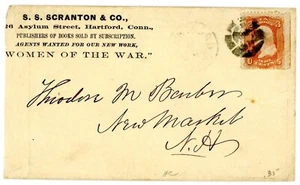 S. S. SCRANTON & CO.,
26 Asylum Street, Hartford, Conn.,
PUBLISHERS OF BOOKS SOLD BY SUBSCRIPTION.
AGENTS WANTED FOR OUR NEW WORK,
WOMEN OF THE WAR."
Theodore M Barber
New Market
N.H